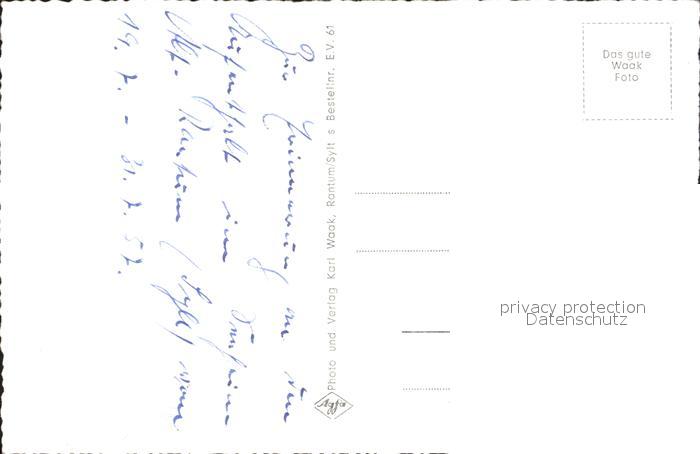 Zur Erinnerung an den
Aufenthalt im
Rantum (Sylt) vom
19. 7. - 31. 7. 57.
Photo und Verlag Karl Waak, Rantum/Sylt s Bestellnr. EV. 61
Agfa
Das gute
Waak
Foto
privacy protection
Datenschutz